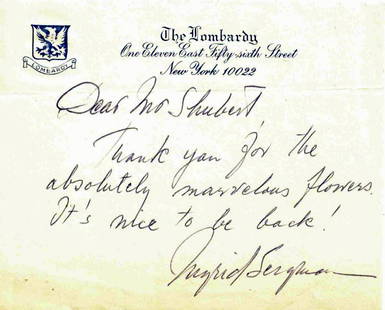 The Lombardy
One Eleven East Fifty-sixth Street
New York 10022
LOMBARDI
Dear Mr Shubert,
Thank you for the
absolutely marvelous flowers.
It's nice to be back!
Ingrid Bergman